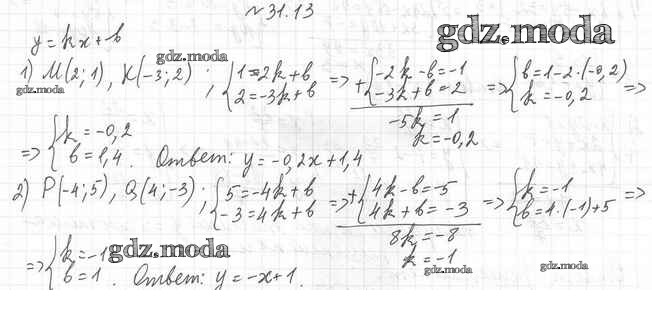 № 31.13
gdz.moda
y = kx + b
gdz.moda
1) M(2; 1), K(-3; 2) ; { 1 = 2k + b => + { -2k - b = -1 => { b = 1 - 2·(-0,2) =>
{ 2 = -3k + b { -3k + b = 2 { k = -0,2
gdz.moda
-5k = 1
k = -0,2
=> { k = -0,2
{ b = 1,4 . Ответ: y = -0,2x + 1,4
2) P(-4; 5), Q(4; -3) ; { 5 = -4k + b => + { 4k - b = -5 => { k = -1 =>
{ -3 = 4k + b { 4k + b = -3 { b = 4·(-1) + 5
8k = -8
k = -1
=> { k = -1
{ b = 1 . Ответ: y = -x + 1.
gdz.moda
gdz.moda
gdz.moda